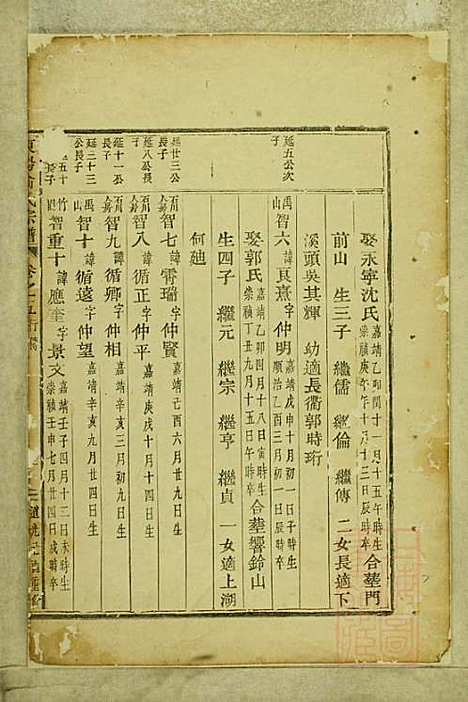 娶永寧沈氏 嘉靖乙卯閏十一月十五午時生 崇禎庚午年十月十三日辰時卒 合塟門
前山 生三子 繼儒 繼倫 繼傳 二女長適下
溪頭吳其輝 幼適長衢郭時珩
延五公次子
智六 諱良熹字仲明 嘉靖戊申十月初一日子時生 順治乙酉三月初一日辰時卒
娶郭氏 嘉靖乙卯四月十八日寅時生 崇禎丁丑九月初三日時卒 合塟響鈴山
生四子 繼元 繼宗 繼亨 繼貞 一女適上湖
何廸
延廿三公長子
智七 諱 字仲賢 嘉靖己酉六月廿九日生
延八公長子
智八 諱循正字仲平 嘉靖庚戌十月十四日生
延十一公長子
智九 諱循卿字仲相 嘉靖辛亥三月初九日生
延二十三公長子
智十 諱循遠字仲望 嘉靖辛亥九月廿四日生
智重十 諱應奎字景文 嘉靖壬子四月十二日未時生 崇禎壬申七月廿四日戌時卒